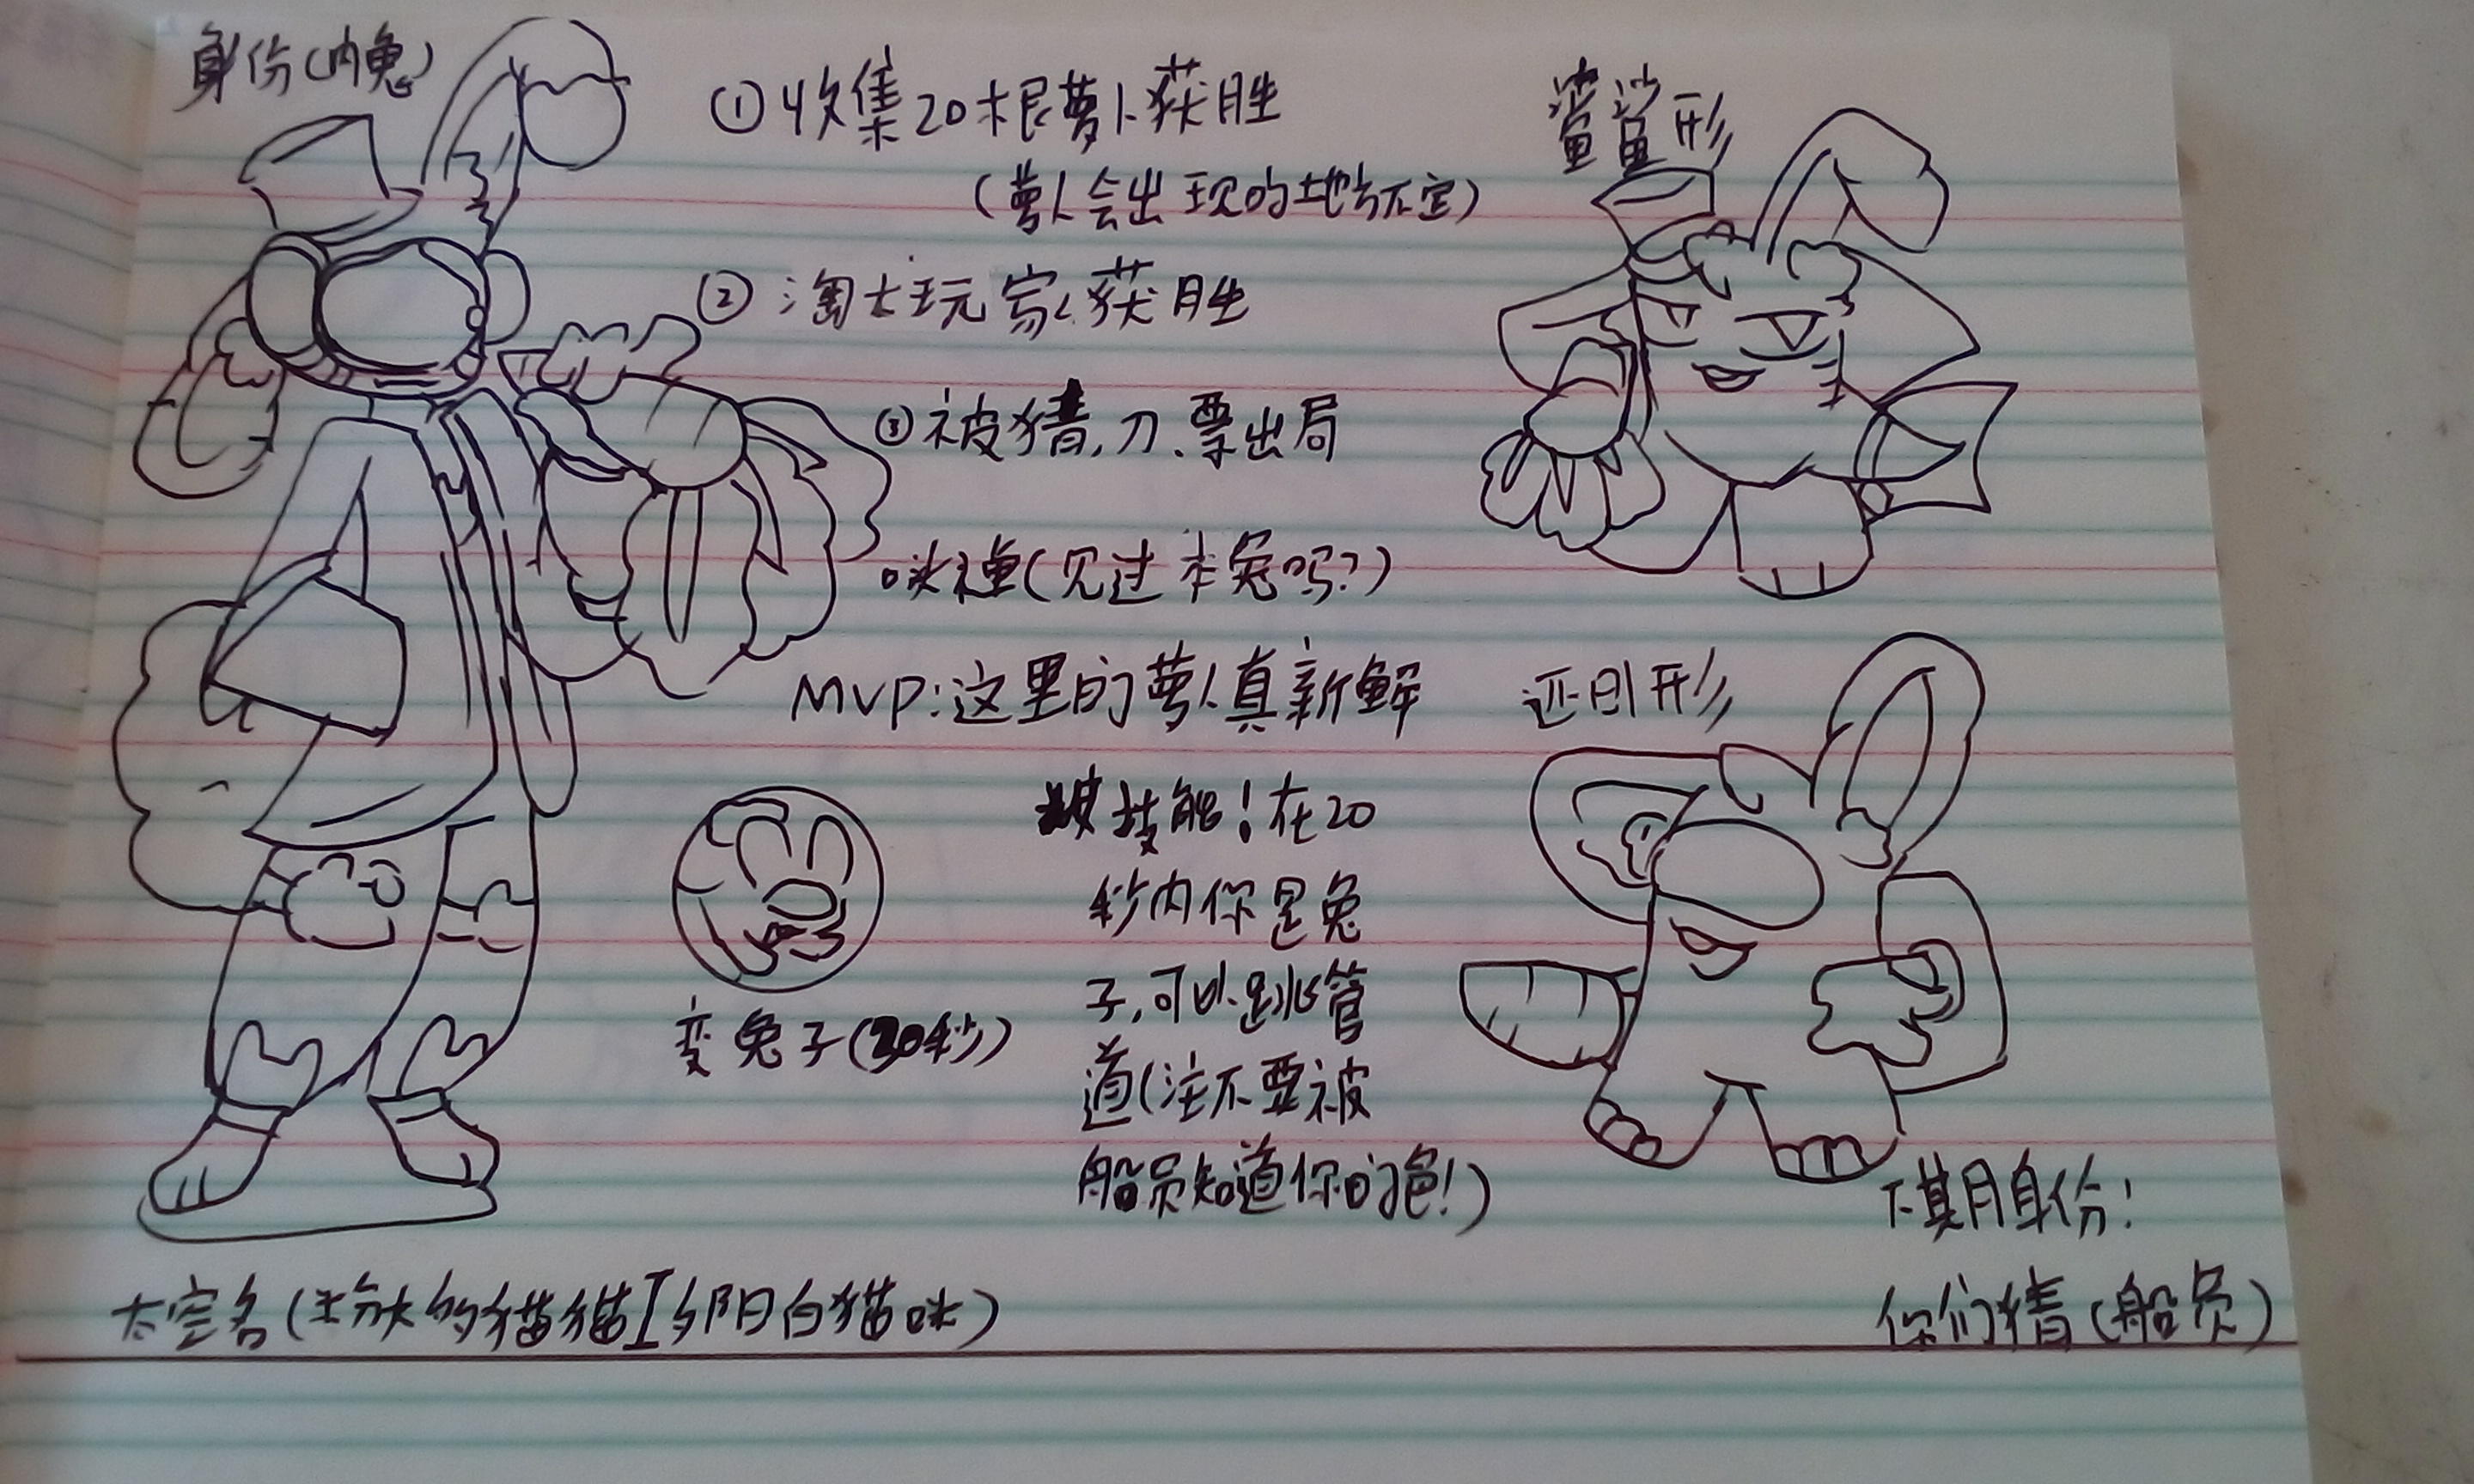 身份(内兔)
①收集20根萝卜获胜
(萝卜会出现的地方不定)
②淘太玩家获胜
③被猜,刀、票出局
(见过本兔吗?)
MVP:这里的萝卜真新鲜
技能!在20
秒内你是兔
子,可以跳管
道(注不要被
船员知道你的
变兔子(20秒)
鲨鲨形
形
下期身份!
你们猜(船员)
太空名(的猫猫I夕阳白猫咪)